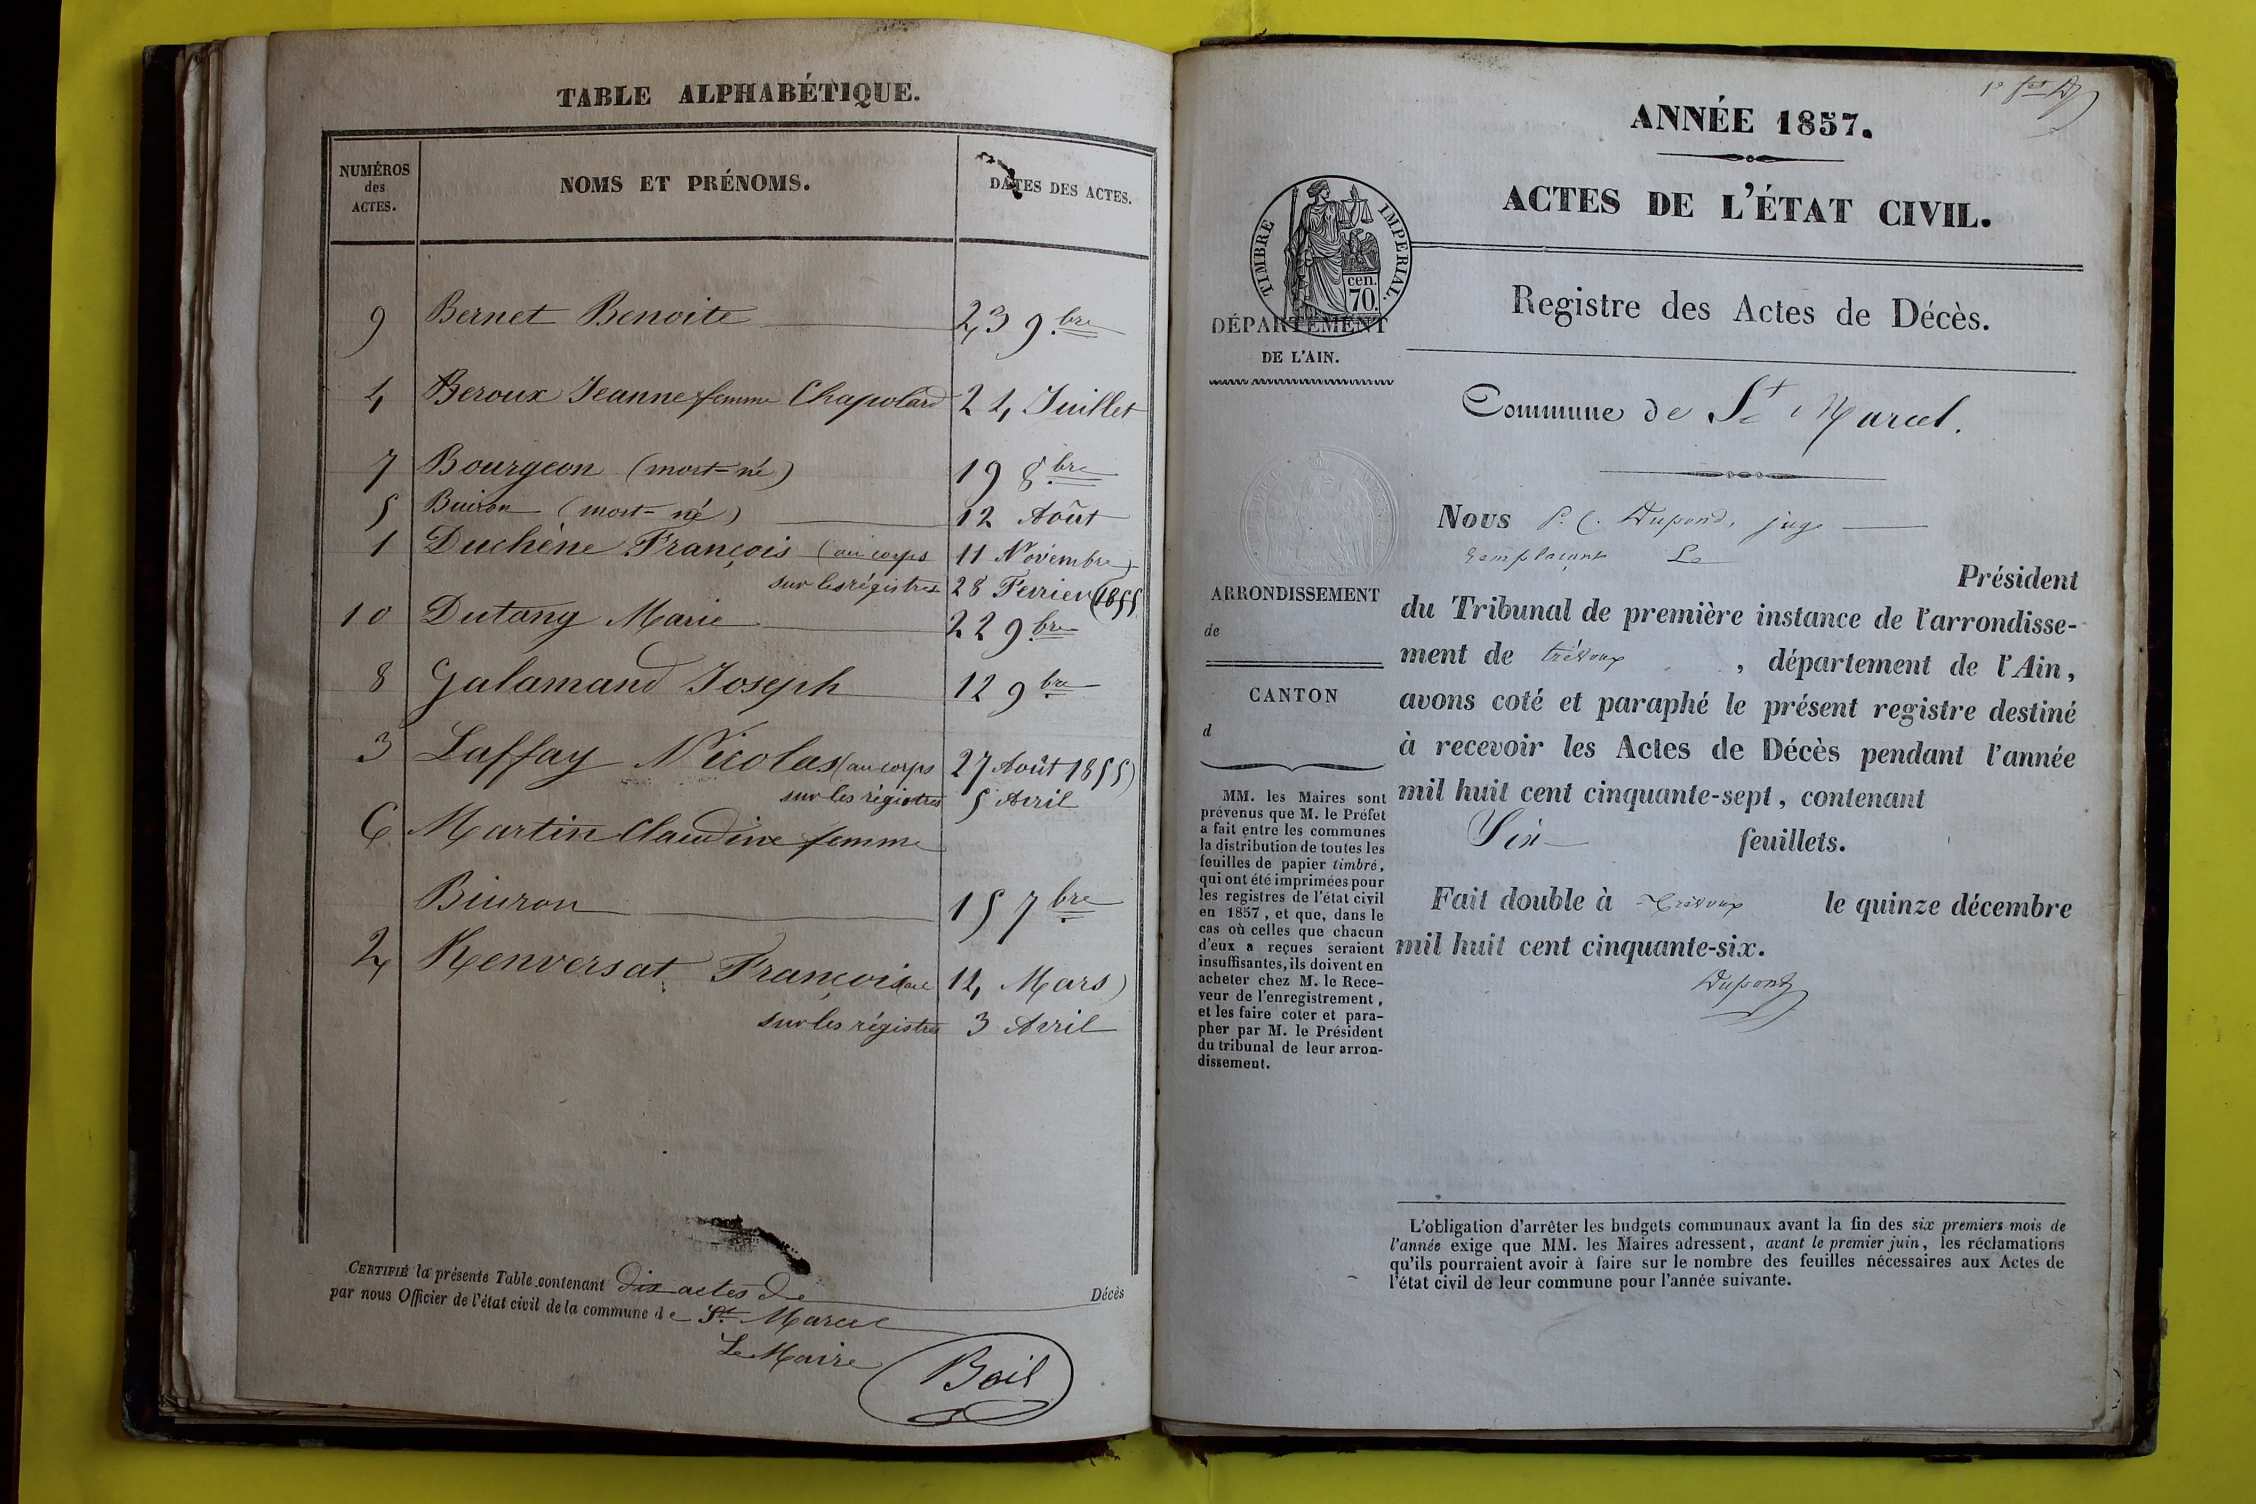 TABLE ALPHABÉTIQUE.
NUMÉROS
des
ACTES.
NOMS ET PRÉNOMS.
DATES DES ACTES.
9 Bernet Benoite 23 9.bre
4 Beroux Jeanne femme Chapolard 24 Juillet
7 Bourgeon (mort-né) 19 8.bre
5 Buiron (mort-né) 12 Août
1 Duchêne François (au corps 11 Novembre)
sur les régistres 28 Fevrier (1855
10 Dutang Marie 22 9.bre
8 Galamand Joseph 12 9.bre
3 Laffay Nicolas (au corps 27 Août 1855)
sur les régistres 5 Avril
6 Martin Claudine femme
Biuron 15 7.bre
2 Renversat François (au 14 Mars)
sur les régistres 3 Avril
CERTIFIÉ la présente Table contenant dix actes de Décès
par nous Officier de l'état civil de la commune de St. Marcel
Le Maire
Bail
ANNÉE 1857.
ACTES DE L'ÉTAT CIVIL.
TIMBRE IMPERIAL.
cen.
70.
DÉPARTEMENT
DE L'AIN.
Registre des Actes de Décès.
Commune de St Marcel.
ARRONDISSEMENT
de
CANTON
d
MM. les Maires sont
prévenus que M. le Préfet
a fait entre les communes
la distribution de toutes les
feuilles de papier timbré,
qui ont été imprimées pour
les registres de l'état civil
en 1857, et que, dans le
cas où celles que chacun
d'eux a reçues seraient
insuffisantes, ils doivent en
acheter chez M. le Rece-
veur de l'enregistrement,
et les faire coter et para-
pher par M. le Président
du tribunal de leur arron-
dissement.
Nous P. C. Dupond, juge
remplaçant Le
Président
du Tribunal de première instance de l'arrondisse-
ment de trévoux, département de l'Ain,
avons coté et paraphé le présent registre destiné
à recevoir les Actes de Décès pendant l'année
mil huit cent cinquante-sept, contenant
Six feuillets.
Fait double à trévoux le quinze décembre
mil huit cent cinquante-six.
Dupond
L'obligation d'arrêter les budgets communaux avant la fin des six premiers mois de
l'année exige que MM. les Maires adressent, avant le premier juin, les réclamations
qu'ils pourraient avoir à faire sur le nombre des feuilles nécessaires aux Actes de
l'état civil de leur commune pour l'année suivante.